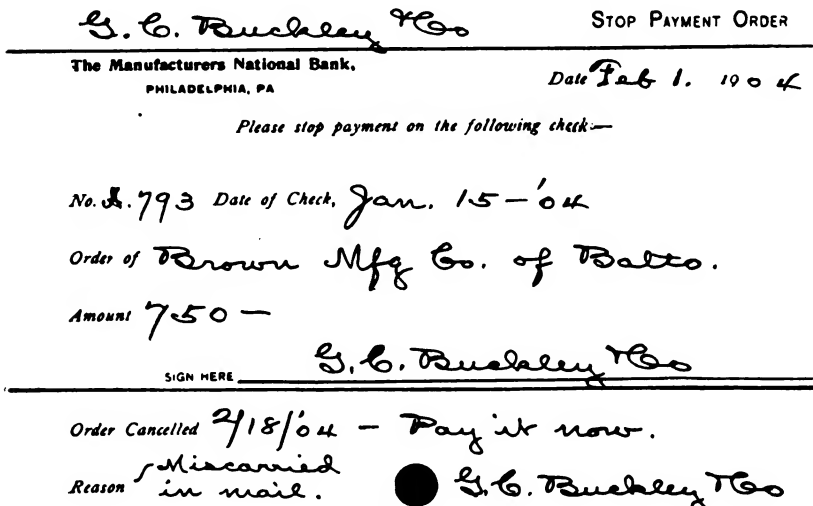 G. C. Buckley & Co STOP PAYMENT ORDER
The Manufacturers National Bank,
PHILADELPHIA, PA
Date Feb 1. 1904
Please stop payment on the following check:—
No. A. 793 Date of Check, Jan. 15-'04
Order of Brown Mfg Co. of Balto.
Amount 750 —
SIGN HERE G. C. Buckley & Co
Order Cancelled 2/18/'04 – Pay it now.
Reason Miscarried
in mail. G. C. Buckley & Co